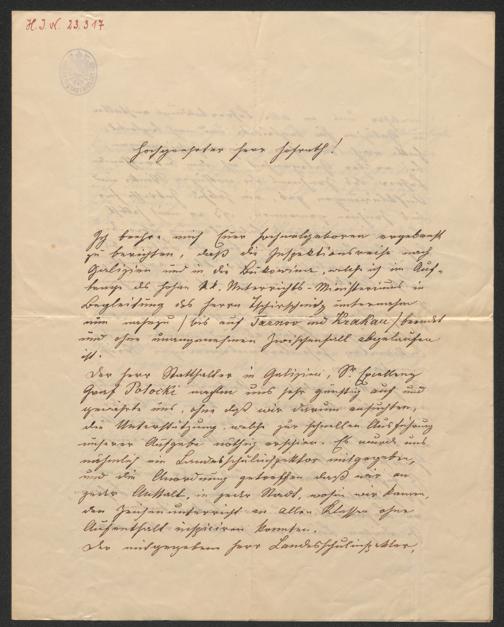 H. I. N. 23.317
Hochgeehrter Herr Hofrath!
Ich beehre mich Euer Hochwolgeboren ergebenst
zu berichten, daß die Inspektionsreise nach
Galizien und in die Bukowina, welche ich im Auf-
trage des hohen kk. Unterrichts-Ministeriums in
Begleitung des Herrn Tschirschnitz unternahm
nun nahezu / bis auf Tarnov und Krakau / beendet
und ohne unangenehmen Zwischenfall abgelaufen
ist.
Der Herr Statthalter in Galizien, Sr Excellenz
Graf Potocki nahm uns sehr günstig auf und
gewährte uns, ohne daß wir darum ansuchten,
die Unterstützung welche zur schnellen Ausführung
unserer Aufgabe nöthig erschien. Es wurde uns
nähmlich ein Landesschulinspektor mitgegeben,
und die Anordnung getroffen daß wir an
jeder Anstalt, in jeder Stadt, wohin wir kamen,
den Zeichenunterricht in allen Klassen ohne
Aufenthalt inspiciren konnten.
Der mitgegebene Herr Landesschulinspektor,